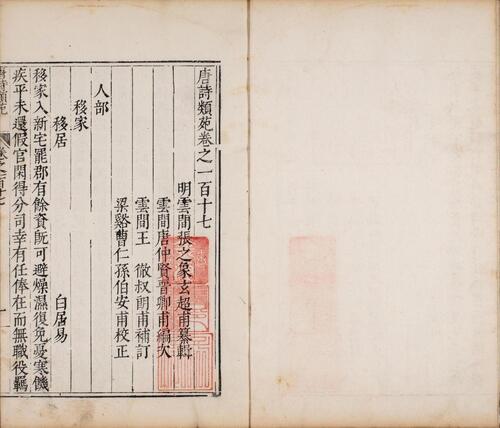 唐詩類苑卷之一百十七
明雲間張之象玄超甫纂輯
雲間唐仲賢晉卿甫編次
雲間王　徹叔朗甫補訂
梁谿曹仁孫伯安甫校正
人部
移家
移居
白居易
移家入新宅罷郡有餘資旣可避燥濕復免憂寒饑
疾平未還假官閑得分司幸有任俸在而無職役羈
唐詩類苑
卷之一百十七